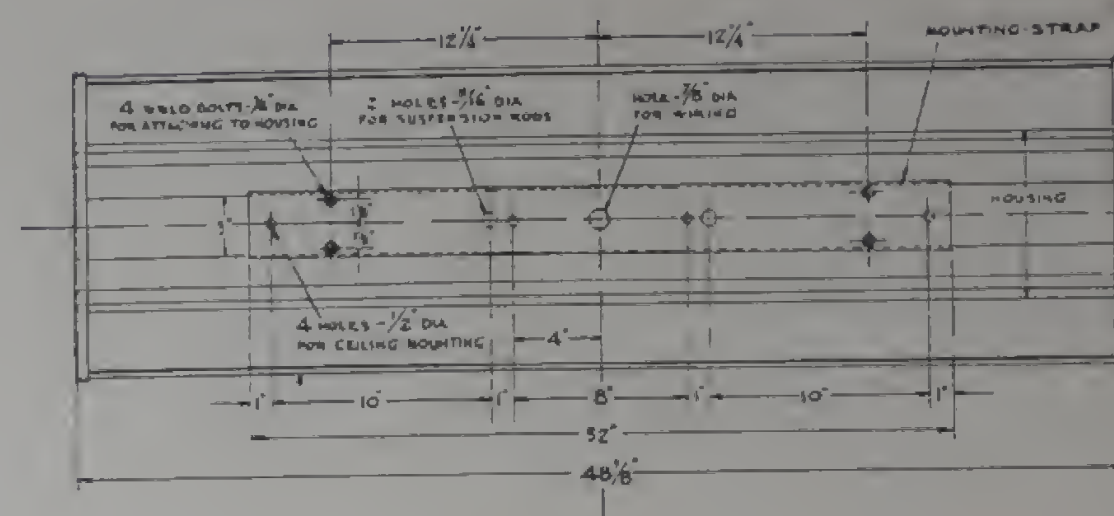 12 1/4"
12 1/4"
MOUNTING-STRAP
4 WELD BOLTS - 1/4" DIA
FOR ATTACHING TO HOUSING
2 HOLES - 11/16" DIA
FOR SUSPENSION RODS
HOLE - 7/8" DIA
FOR WIRING
HOUSING
3"
4 HOLES - 1/2" DIA
FOR CEILING MOUNTING
4"
1"
10"
1"
8"
1"
10"
1"
32"
48 1/8"